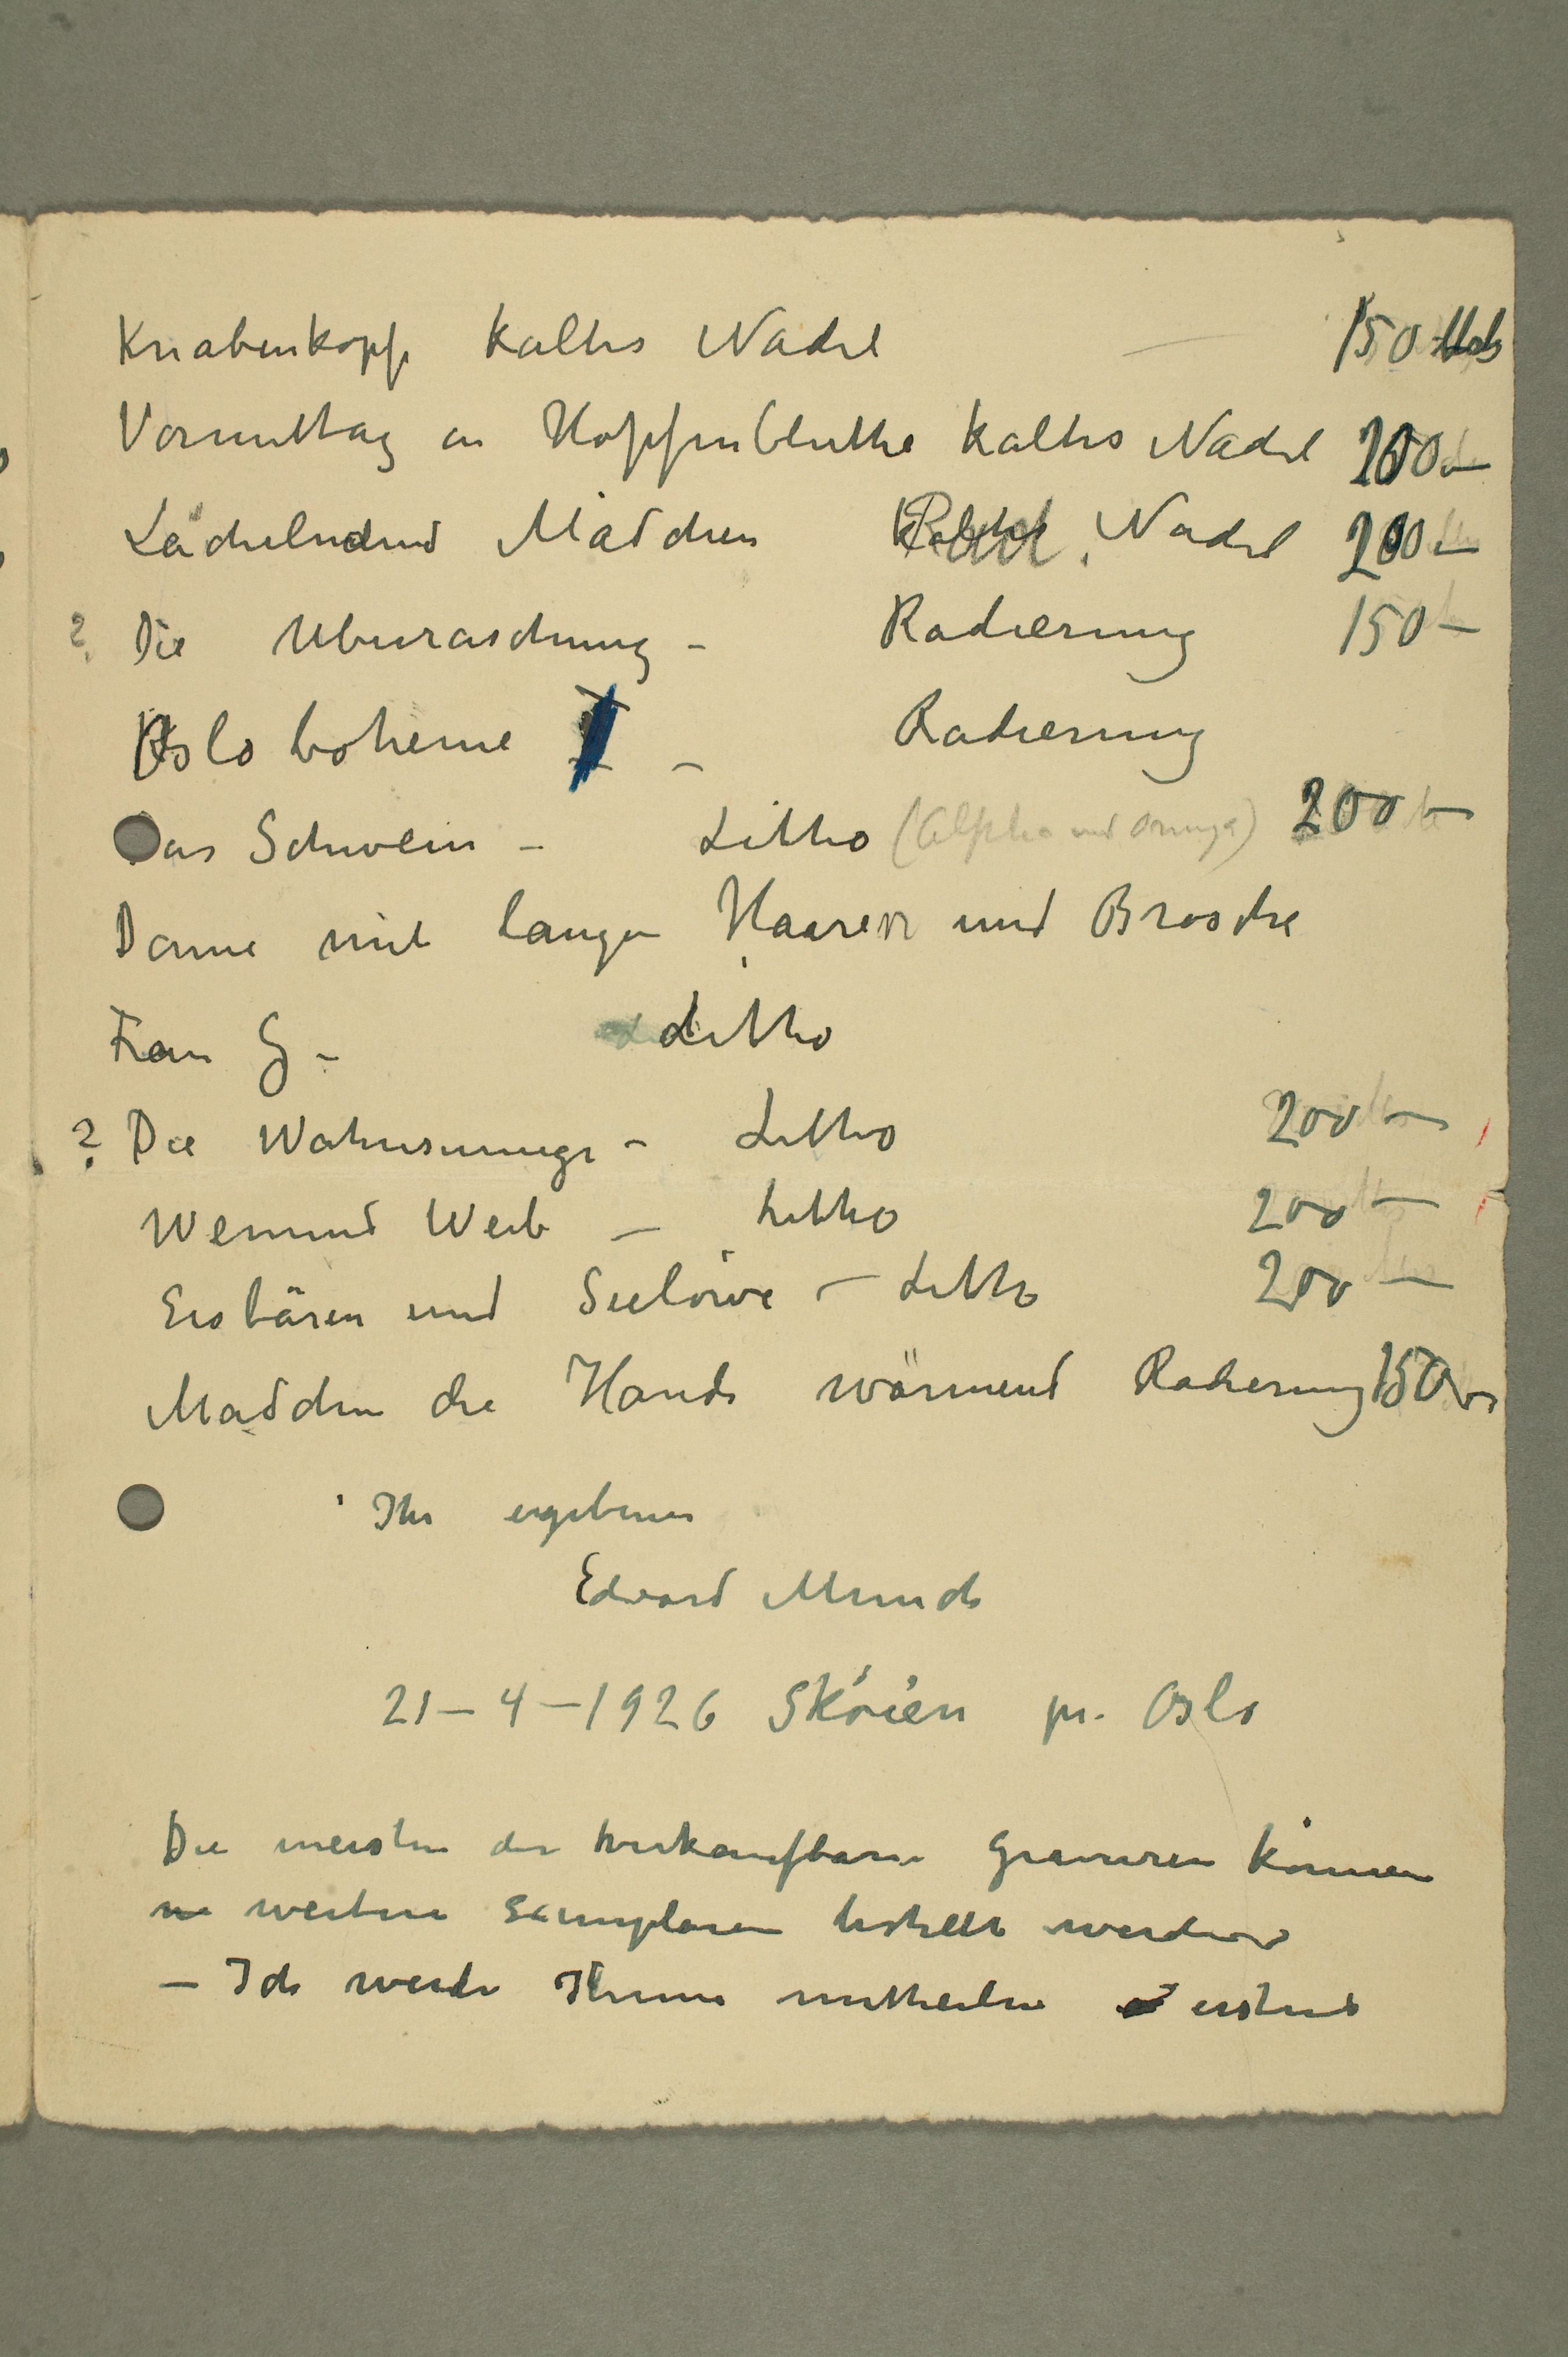 Knabenkopf kaltes Nadel — 150 Mk
Vormittag in Hopfenbluthe kaltes Nadel 200 —
Lächelndend Mädchen kaltes Nadel 200 —
? Die Uberraschung - Radierung 150 —
Oslo boheme - Radierung
Das Schwein - Litho (Alpha und Omega) 200 —
Dame mit langen Haaren und Brosche
Frau G - Litho
? Die Wahnsinnige - Litho 200 —
Weinend Weib — Litho 200 —
Eisbären und Seelöwe — Litho 200 —
Madchen die Hande wärmend Radierung 150
Ihr ergebener
Edvard Munch
21—4—1926 Sköien pr. Oslo
Die meisten der verkaufbaren Gravuren können
in weitere Exemplaren bestellt werden
— Ich werde Ihnen mittheilen erstens